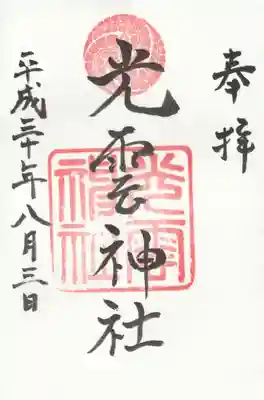 奉拝
光雲神社
平成三十年八月三日
光雲神社